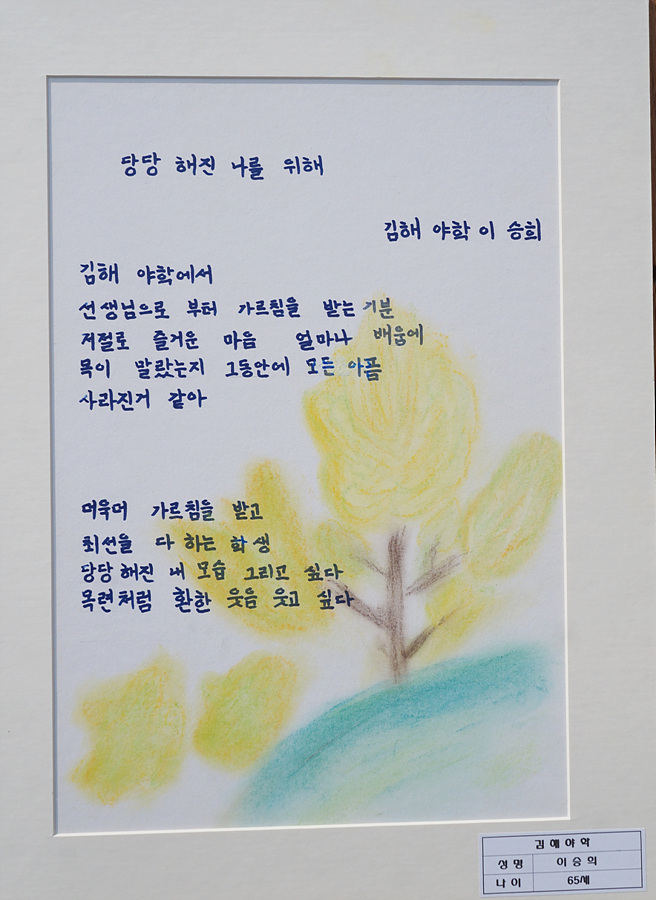 당당 해진 나를 위해
김해 야학 이 승희
김해 야학에서
선생님으로 부터 가르침을 받는 기분
저절로 즐거운 마음 얼마나 배움에
목이 말랐는지 그동안에 모든 아픔
사라진거 같아
더욱더 가르침을 받고
최선을 다 하는 학생
당당해진 내 모습 그리고 싶다
목련처럼 환한 웃음 웃고 싶다
김해야학
성명 이승희
나이 65세